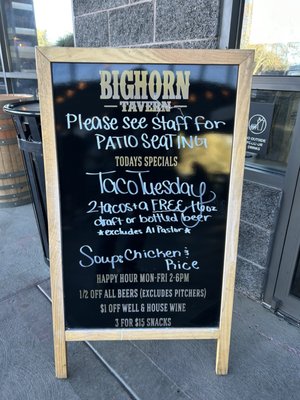 BIGHORN
TAVERN
Please see Staff for
PATIO SEATING
TODAYS SPECIALS
Taco Tuesday
2 tacos + a FREE 16oz
draft or bottled beer
*excludes Al Pastor*
Soup: Chicken &
Rice
HAPPY HOUR MON-FRI 2-6PM
1/2 OFF ALL BEERS (EXCLUDES PITCHERS)
$1 OFF WELL & HOUSE WINE
3 FOR $15 SNACKS